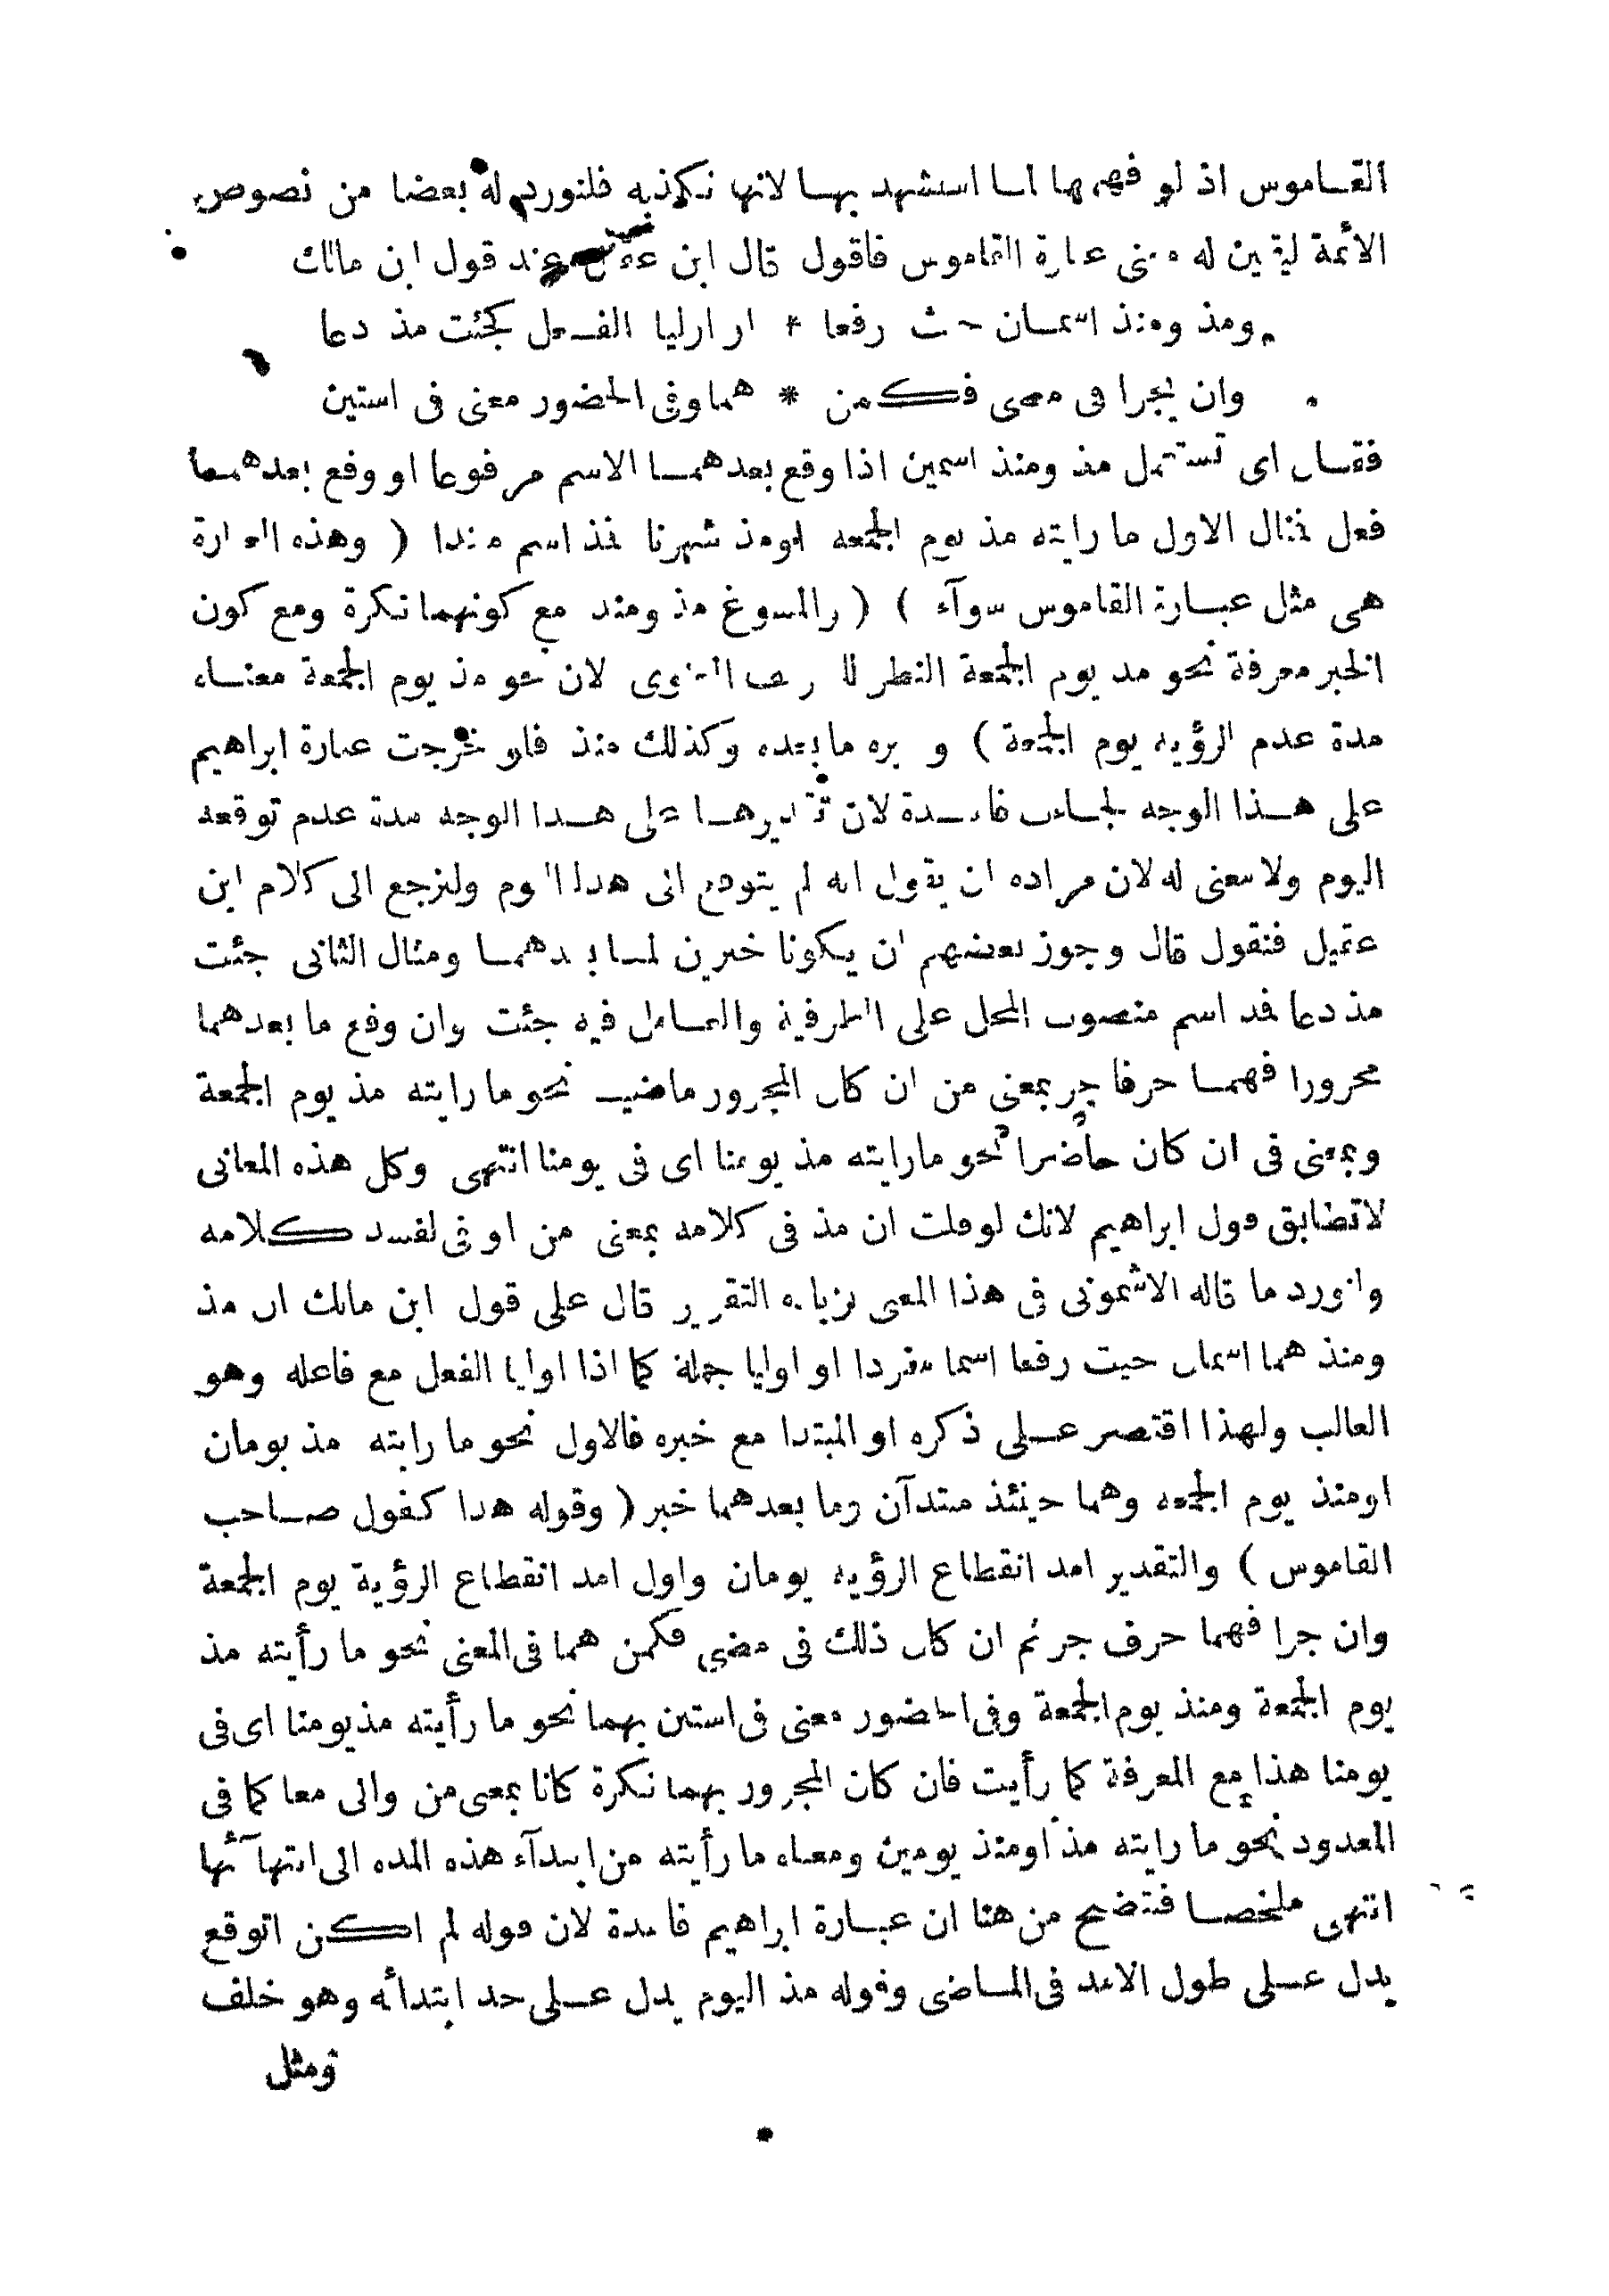 القاموس اذ لو فهمها لما استشهد بها لانها تكذبه فلنورد له بعضا من نصوص
الائمة ليتبين له معنى عبارة القاموس فاقول قال ابن عقيل عند قول ابن مالك
ومذ ومنذ اسمان حيث رفعا * او اوليا الفعل كجئت مذ دعا
وان يجرا فى مضى فكمن * هما وفى الحضور معنى فى استبن
فقال اى تستعمل مذ ومنذ اسمين اذا وقع بعدهما الاسم مرفوعا او وقع بعدهما
فعل فثال الاول ما رايته مذ يوم الجمعة اومذ شهرنا فذ اسم مبتدا ( وهذه العبارة
هى مثل عبارة القاموس سوآء ) ( والمسوغ مذ ومنذ مع كونهما نكرة ومع كون
الخبر معرفة نحو مذ يوم الجمعة النظر للا المعنوى لان نحو مذ يوم الجمعة معناه
مدة عدم الرؤية يوم الجمعة ) وخبره ما بعده وكذلك منذ فلو خرجت عبارة ابراهيم
على هذا الوجه لجاءت فاسدة لان تقديرها على هذا الوجه مدة عدم توقعه
اليوم ولا معنى له لان مراده ان يقول انه لم يتوقع الى هذا اليوم ولنرجع الى كلام ابن
عقيل فنقول قال وجوز بعضهم ان يكونا خبرين لما بعدهما ومثال الثانى جئت
مذ دعا فذ اسم منصوب المحل على الظرفية والعامل فيه جئت وان وقع ما بعدهما
مجرورا فهما حرفا جر بمعنى من ان كان المجرور ماضيا نحو ما رايته مذ يوم الجمعة
وبمعنى فى ان كان حاضرا نحو مارايته مذ يومنا اى فى يومنا انتهى وكل هذه المعانى
لاتطابق قول ابراهيم لانك لوقلت ان مذ فى كلامه بمعنى من او فى لفسد كلامه
ولنورد ما قاله الاشمونى فى هذا المعنى لزيادة التقرير قال على قول ابن مالك ان مذ
ومنذ هما اسمان حيث رفعا اسما مفردا او اوليا جملة كما اذا اوليا الفعل مع فاعله وهو
الغالب ولهذا اقتصر على ذكره او المبتدا مع خبره فالاول نحو ما رايته مذ يومان
اومنذ يوم الجمعة وهما حينئذ مبتدآن وما بعدهما خبر ( وقوله هذا كقول صاحب
القاموس ) والتقدير امد انقطاع الرؤية يومان واول امد انقطاع الرؤية يوم الجمعة
وان جرا فهما حرف جر ثم ان كان ذلك فى مضى فكمن هما فى المعنى نحو ما رأيته مذ
يوم الجمعة ومنذ يوم الجمعة وفى الحضور معنى فى استبن بهما نحو ما رأيته مذيومنا اى فى
يومنا هذا مع المعرفة كما رأيت فان كان المجرور بهما نكرة كانا بمعنى من والى معا كما فى
المعدود نحو ما رايته مذ اومنذ يومين ومعناه ما رأيته من ابتدآء هذه المده الى انتهآئها
انتهى ملخصا فتضح من هنا ان عبارة ابراهيم فاسدة لان قوله لم اكن اتوقع
يدل على طول الامد فى الماضى وقوله مذ اليوم يدل على حد ابتدأه وهو خلف
ومثل